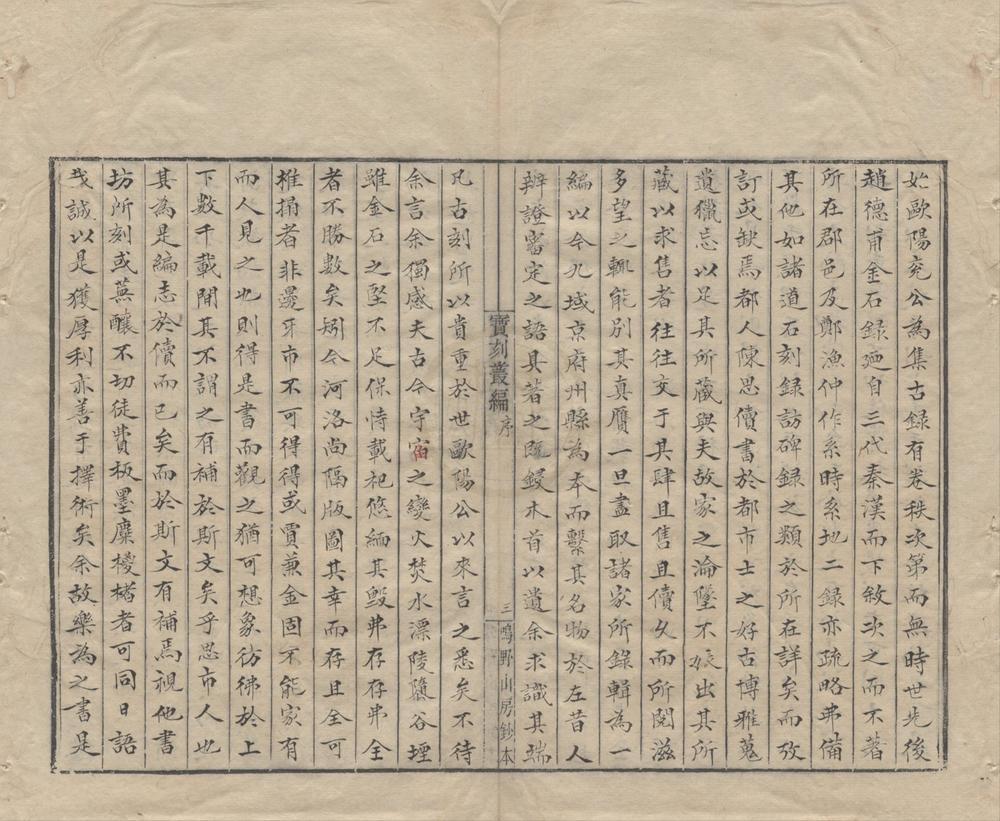 始歐陽兖公為集古録有卷秩次第而無時世先後
趙德甫金石録廼自三代秦漢而下敘次之而不著
所在郡邑及鄭漁仲作系時系地二録亦疏略弗備
其他如諸道石刻録訪碑録之類於所在詳矣而攷
訂或缺焉都人陳思儥書於都市士之好古博雅蒐
遺獵忘以足其所藏與夫故家之淪墜不振出其所
藏以求售者往往交于其肆且售且儥久而所閱滋
多望之輒能別其真贋一旦盡取諸家所錄輯為一
編以今九域京府州縣為本而繫其名物於左昔人
辨證審定之語具著之既鋟木首以遺余求識其端
凡古刻所以貴重於世歐陽公以來言之悉矣不待
余言余獨感夫古今宇宙之變火焚水漂陵隳谷堙
雖金石之堅不足保恃載祀悠緬其毀弗存存弗全
者不勝數矣矧今河洛尚隔版圖其幸而存且全可
椎搨者非邊牙市不可得得或賈兼金固不能家有
而人見之也則得是書而觀之猶可想象彷彿於上
下數千載間其不謂之有補於斯文矣乎思市人也
其為是編志於儥而已矣而於斯文有補焉視他書
坊所刻或蕪釀不切徒費板墨靡櫌楮者可同日語
㦲誠以是獲厚利亦善于擇術矣余故樂為之書是
寶刻叢編 序
三 鳴野山房鈔本